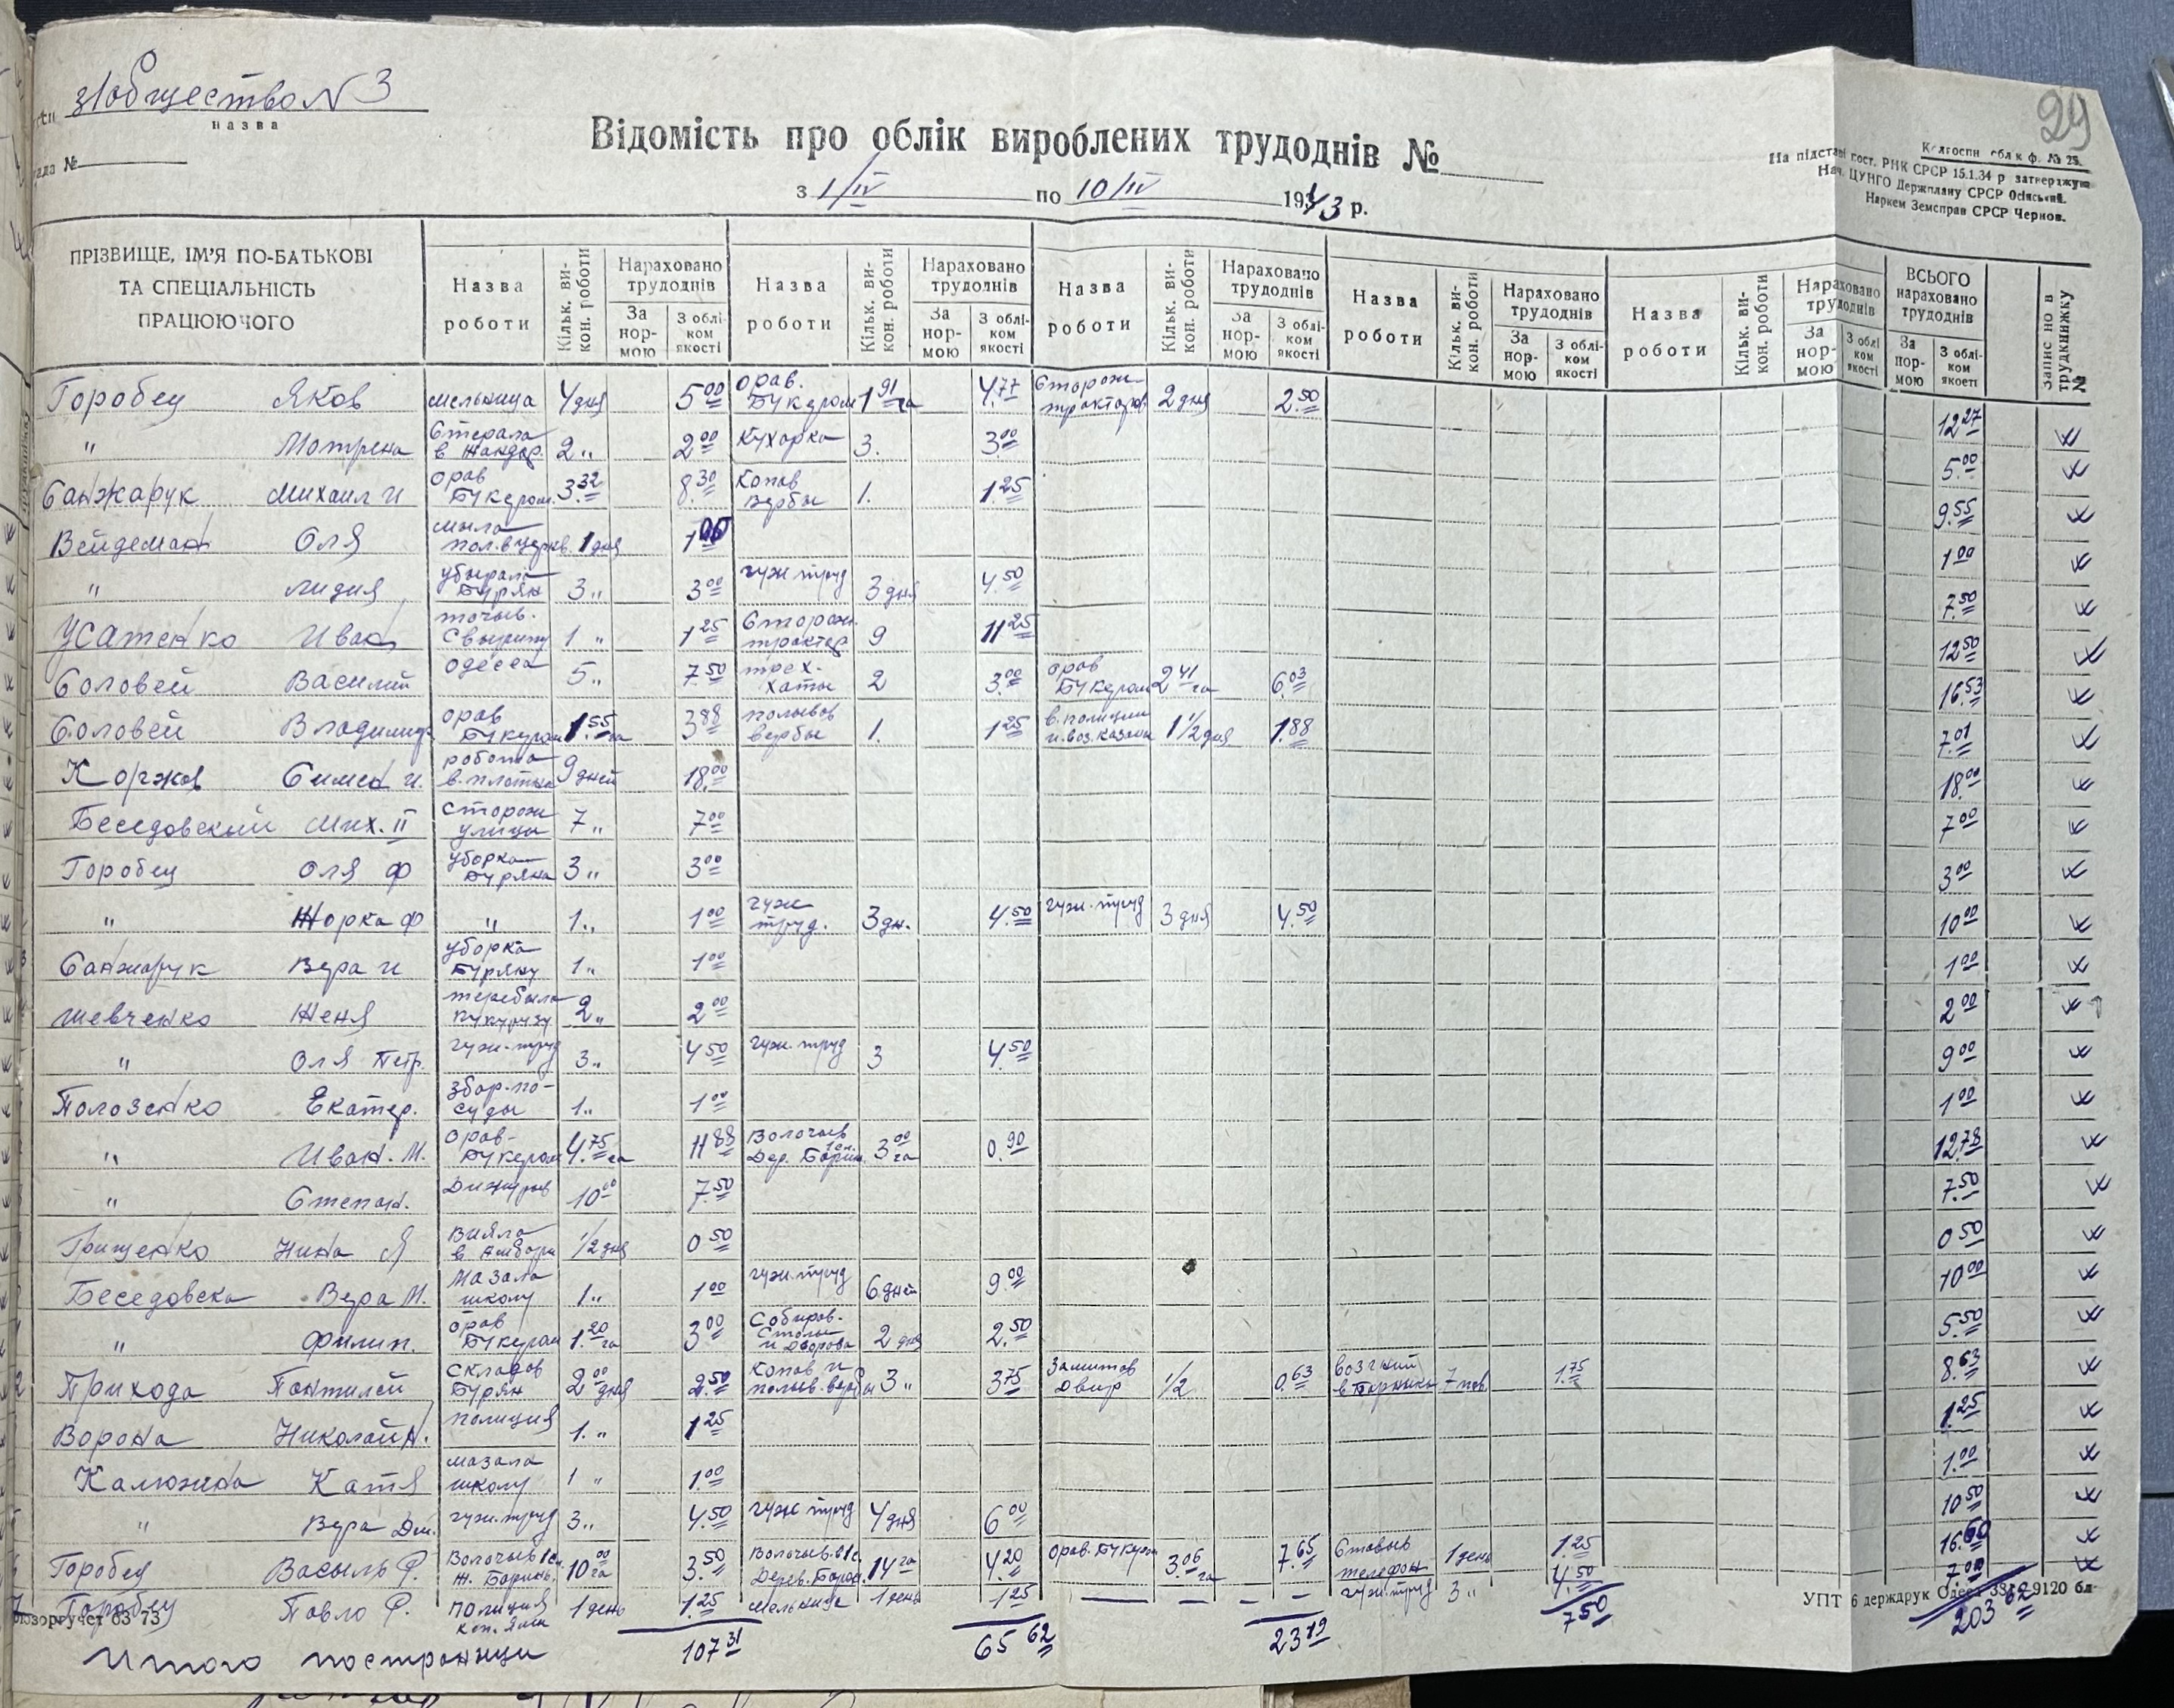 з/общество N 3
назва
29
Відомість про облік вироблених трудоднів №
з 1/IV по 10/IV 1943 р.
Колгоспн. облік ф. № 25.
На підставі пост. РНК СРСР 15.1.34 р. затверджую
Нач. ЦУНГО Держплану СРСР Осінський.
Наркем Земсправ СРСР Чернов.
ПРІЗВИЩЕ, ІМ'Я ПО-БАТЬКОВІ ТА СПЕЦІАЛЬНІСТЬ ПРАЦЮЮЧОГО
Назва роботи Кільк. викон. роботи Нараховано трудоднів За нормою З обліком якості
Назва роботи Кільк. викон. роботи Нараховано трудоднів За нормою З обліком якості
Назва роботи Кільк. викон. роботи Нараховано трудоднів За нормою З обліком якості
Назва роботи Кільк. викон. роботи Нараховано трудоднів За нормою З обліком якості
Назва роботи Кільк. викон. роботи Нараховано трудоднів За нормою З обліком якості
ВСЬОГО нараховано трудоднів За нормою З обліком якості
Запис но в трудкнижку №
Горобец Яков мельница 4 дня 5.00 Орав. Букером 1.91 га 4.77 Сторож. тракторов 2 дня 2.50 12.27
" Мотрена Стерала в жандар. 2 " 2.00 Кухарка 3. 3.00 5.00
Санжарук Михаил И Орав Букером 3.32 8.30 Копав Вербы 1. 1.25 9.55
Вейдеман Оля мыла пол. в церкв. 1 дня 1.00 1.00
" Лидия убырала Бурян 3 " 3.00 гуж. труд 3 дня 4.50 7.50
Усатенко Иван 1 " 1.25 Сторож. трактор 9 11.25 12.50
Соловей Василий Одесса 5 " 7.50 хаты 2 3.00 Орав Букером 2.41 га 6.03 16.53
Соловей Владимир Орав Букером 1.55 га 3.88 полывав вербы 1. 1.25 в полиции 1 1/2 дня 1.88 7.01
Коржов Симен И. робота 9 дней 18.00 18.00
Беседовский Мих. II Сторож улицы 7 " 7.00 7.00
Горобец Оля Ф уборка Буряна 3 " 3.00 3.00
" Жорка Ф " 1 " 1.00 гуж. труд. 3 дн. 4.50 гуж. труд 3 дня 4.50 10.00
Санжарук Вера И уборка Буряну 1 " 1.00 1.00
Шевченко Женя теребыла кукурузу 2 " 2.00 2.00
" Оля Петр. гуж. труд 3 " 4.50 гуж. труд 3 4.50 9.00
Полозенко Екатер. збор. посуды 1 " 1.00 1.00
" Иван. М. Орав. Букером 4.75 га 11.88 Волочыв Дер. 3.00 га 0.90 12.78
" Степан. Дижурыв 10.00 7.50 7.50
Грищенко Нина Я Вияла в Амбари 1/2 дня 0.50 0.50
Беседовска Вера М. Мазала школу 1 " 1.00 гуж. труд 6 дней 9.00 10.00
" Филип. Орав Букером 1.20 га 3.00 Собирав. Столы 2 дня 2.50 5.50
Прихода Пантилей Складав Бурян 2.00 дня 2.50 Копав и полыв. вербы 3 " 3.75 Замитав двир 1/2 0.63 7 1.75 8.63
Ворона Николай Н. полиция 1. " 1.25 1.25
Калюжна Катя мазала школу 1 " 1.00 1.00
" Вера Дм. гуж. труд 3 " 4.50 гуж труд 4 дня 6.00 10.50
Горобец Васыль Ф. Волочыв 1 сл. Ж. Боринь. 10.00 га 3.50 Волочыв. в 1 с. Дерев. Борон. 14 га 4.20 Орав. Букером 3.06 га 7.65 Ставыв телефон 1 день 1.25 16.60
Горобец Павло Ф. полиция коп. ямы 1 день 1.25 мельница 1 день 1.25 — — — гуж. труд 3 " 4.50 7.00
Союзоргучет 63 73 УПТ 6 держдрук Одеса 9120 бл-
Итого по странице 107.31 65.62 23.19 7.50 203.62